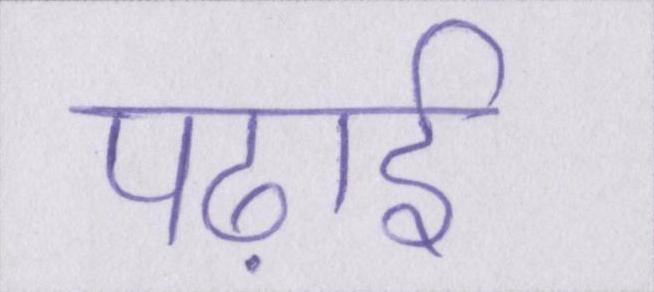 पढ़ाई